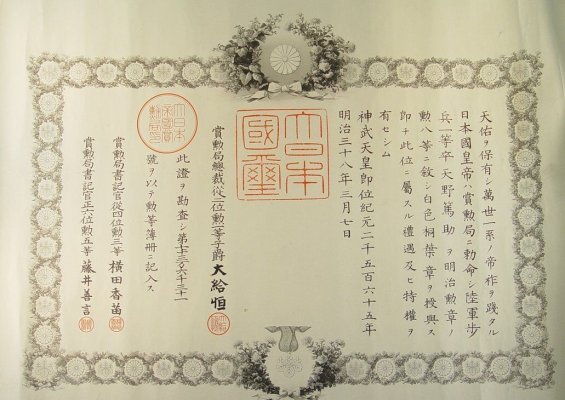 天佑ヲ保有シ萬世一系ノ帝祚ヲ踐タル
日本國皇帝ハ賞勲局ニ勅命シ陸軍歩
兵一等卒天野篤助ヲ明治勲章ノ
勲八等ニ敘シ白色桐葉章ヲ授與ス
即チ此位ニ屬スル禮遇及ヒ特權ヲ
有セシム
神武天皇即位紀元二千五百六十五年
明治三十八年三月七日
大日本
國璽
賞勲局總裁從二位勲一等子爵大給恒
大日本
帝國
賞勲局
此證ヲ勘査シ第七十三万六千三十一
號ヲ以テ勲等簿冊ニ記入ス
賞勲局書記官從四位勲三等橫田香苗
賞勲局書記官正六位勲五等藤井善言